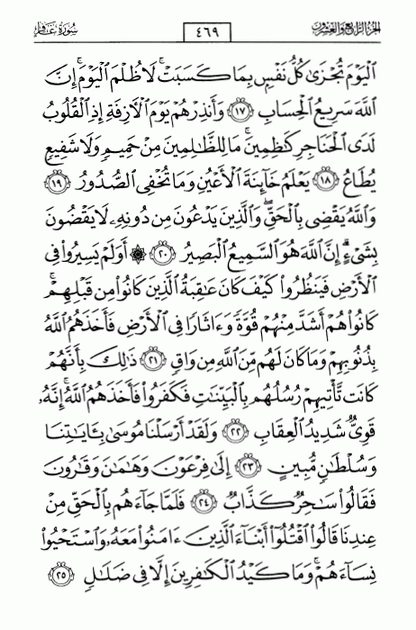 الجزء الرابع والعشرون ٤٦٩ سورة غافر
ٱلْيَوْمَ تُجْزَىٰ كُلُّ نَفْسٍۭ بِمَا كَسَبَتْ ۚ لَا ظُلْمَ ٱلْيَوْمَ ۚ إِنَّ
ٱللَّهَ سَرِيعُ ٱلْحِسَابِ ١٧ وَأَنذِرْهُمْ يَوْمَ ٱلْـَٔازِفَةِ إِذِ ٱلْقُلُوبُ
لَدَى ٱلْحَنَاجِرِ كَـٰظِمِينَ ۚ مَا لِلظَّـٰلِمِينَ مِنْ حَمِيمٍ وَلَا شَفِيعٍ
يُطَاعُ ١٨ يَعْلَمُ خَآئِنَةَ ٱلْأَعْيُنِ وَمَا تُخْفِى ٱلصُّدُورُ ١٩
وَٱللَّهُ يَقْضِى بِٱلْحَقِّ ۖ وَٱلَّذِينَ يَدْعُونَ مِن دُونِهِۦ لَا يَقْضُونَ
بِشَىْءٍ ۗ إِنَّ ٱللَّهَ هُوَ ٱلسَّمِيعُ ٱلْبَصِيرُ ٢٠ ۞ أَوَلَمْ يَسِيرُوا۟ فِى
ٱلْأَرْضِ فَيَنظُرُوا۟ كَيْفَ كَانَ عَـٰقِبَةُ ٱلَّذِينَ كَانُوا۟ مِن قَبْلِهِمْ ۚ
كَانُوا۟ هُمْ أَشَدَّ مِنْهُمْ قُوَّةً وَءَاثَارًا فِى ٱلْأَرْضِ فَأَخَذَهُمُ ٱللَّهُ
بِذُنُوبِهِمْ وَمَا كَانَ لَهُم مِّنَ ٱللَّهِ مِن وَاقٍ ٢١ ذَٰلِكَ بِأَنَّهُمْ
كَانَت تَّأْتِيهِمْ رُسُلُهُم بِٱلْبَيِّنَـٰتِ فَكَفَرُوا۟ فَأَخَذَهُمُ ٱللَّهُ ۚ إِنَّهُۥ
قَوِىٌّ شَدِيدُ ٱلْعِقَابِ ٢٢ وَلَقَدْ أَرْسَلْنَا مُوسَىٰ بِـَٔايَـٰتِنَا
وَسُلْطَـٰنٍ مُّبِينٍ ٢٣ إِلَىٰ فِرْعَوْنَ وَهَـٰمَـٰنَ وَقَـٰرُونَ
فَقَالُوا۟ سَـٰحِرٌ كَذَّابٌ ٢٤ فَلَمَّا جَآءَهُم بِٱلْحَقِّ مِنْ
عِندِنَا قَالُوا۟ ٱقْتُلُوٓا۟ أَبْنَآءَ ٱلَّذِينَ ءَامَنُوا۟ مَعَهُۥ وَٱسْتَحْيُوا۟
نِسَآءَهُمْ ۚ وَمَا كَيْدُ ٱلْكَـٰفِرِينَ إِلَّا فِى ضَلَـٰلٍ ٢٥